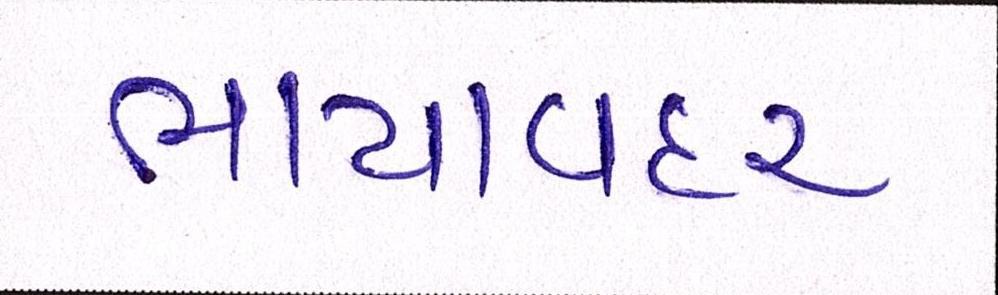 ભાયાવદર